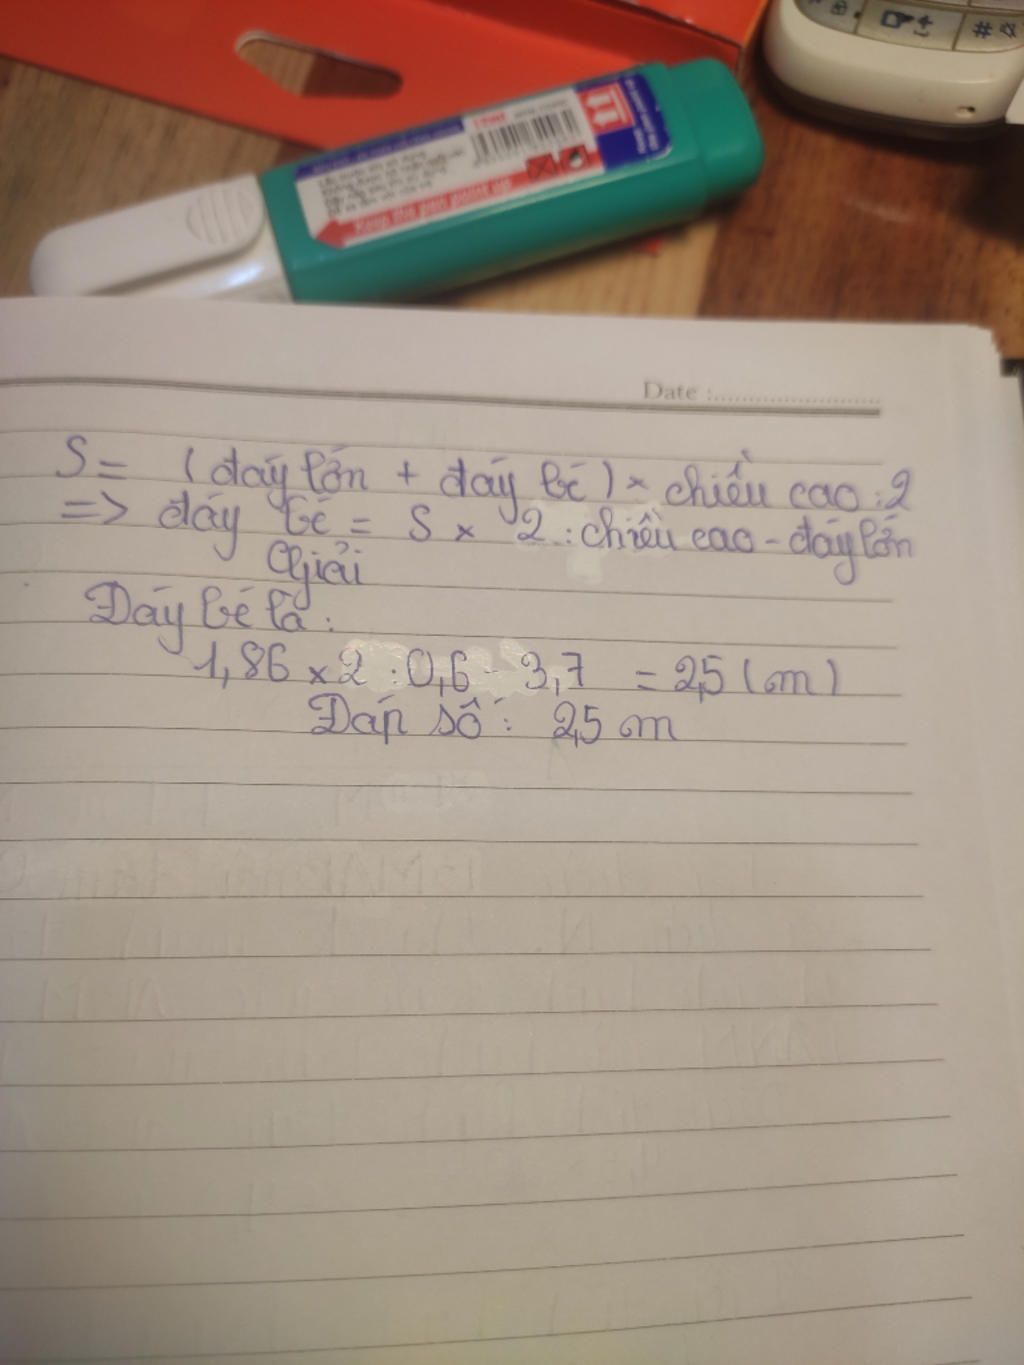 Keep the pen point up
Date :
S = (đáy lớn + đáy bé) × chiều cao : 2
=> đáy bé = S × 2 : chiều cao - đáy lớn
Giải
Đáy bé là :
1,86 × 2 : 0,6 - 3,7 = 2,5 (m)
Đáp số : 2,5 m